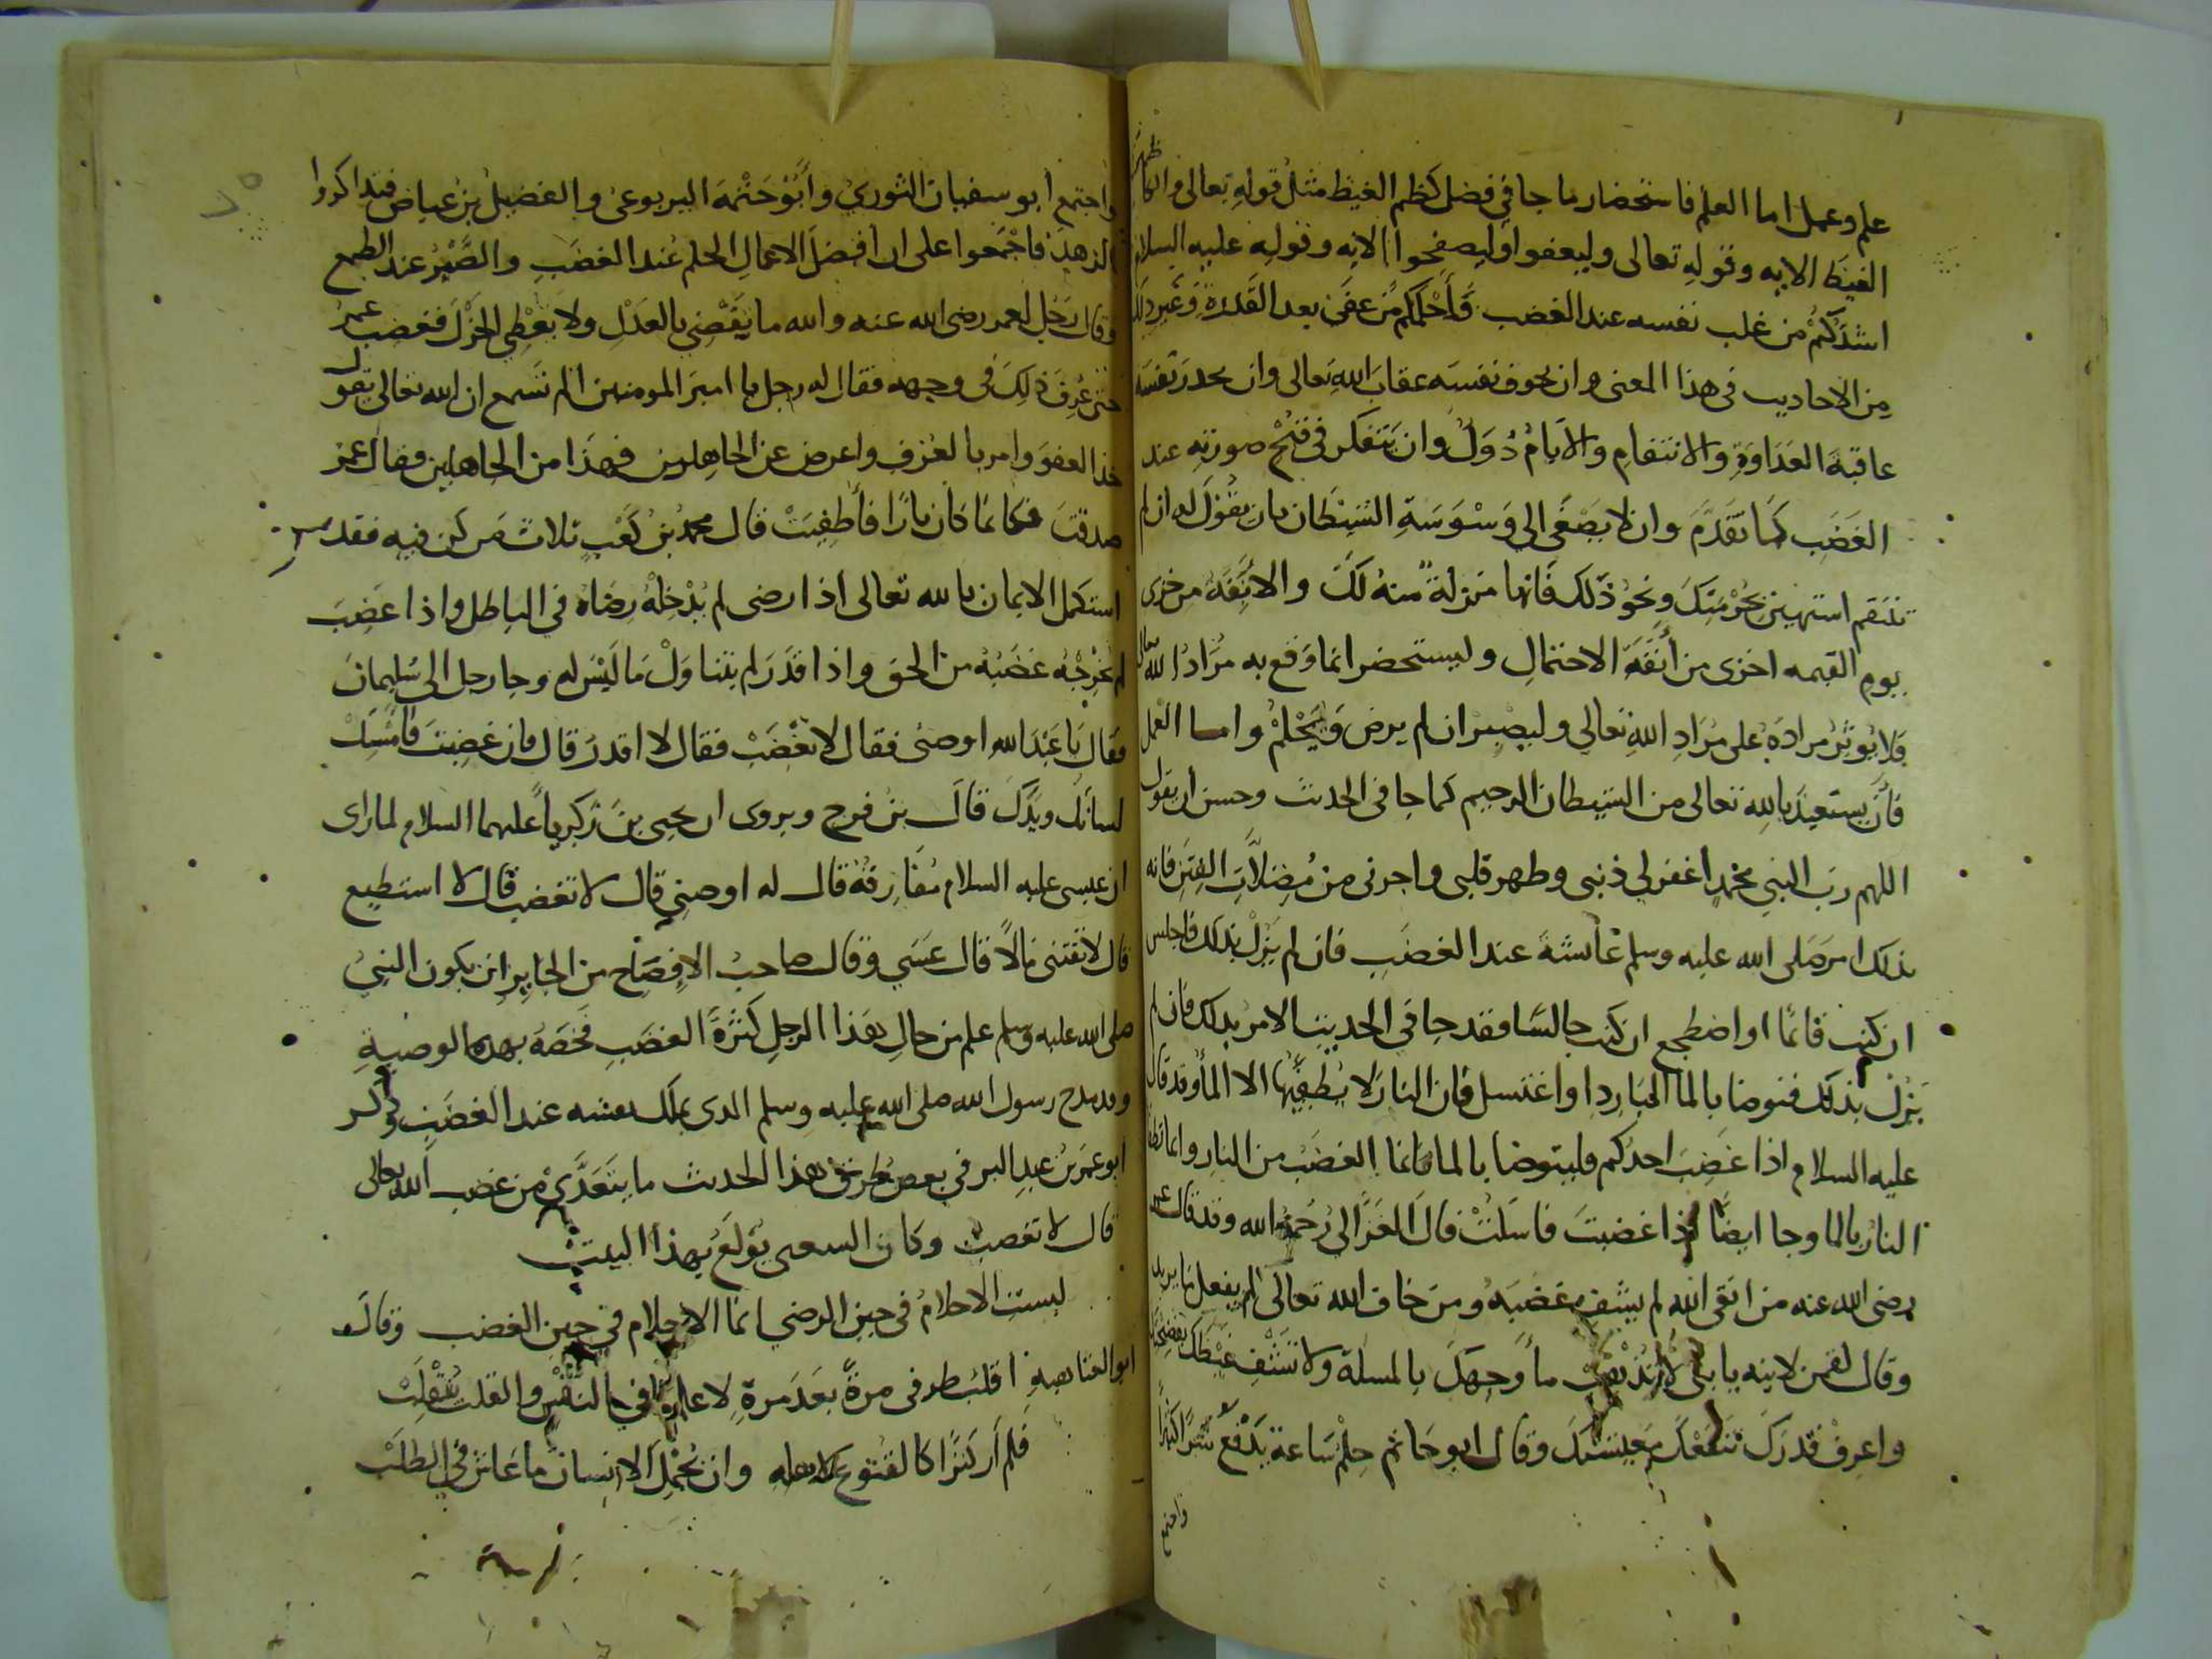 علم وعمل اما العلم فاستحضار ما جا في فضل كظم الغيظ مثل قوله تعالى والكاظمين
الغيظ الايه وقوله تعالى وليعفوا وليصفحوا الايه وقوله عليه السلام
اشدكم من غلب نفسه عند الغضب وأحلمكم من عفى بعد القدرة وغير ذلك
من الاحاديث في هذا المعنى وان يخوف نفسه عقاب الله تعالى وان يحذر نفسه
عاقبة العداوة والانتقام والايام دول وان يتفكر في قبح صورته عند
الغضب كما تقدم وان لا يصغى الى وسوسة الشيطان بان يقول له ان لم
تنتقم استهين بحرمتك ونحو ذلك فانها منزلة منه لك والانفة من خزى
يوم القيمه اخزى من أنفة الاحتمال وليستحضر انما وقع به مراد الله تعالى
فلا يوثر مراده على مراد الله تعالى وليصبر ان لم يرض ويحلم واما العمل
فأن يستعيذ بالله تعالى من الشيطان الرجيم كما جا في الحديث وحسن أن يقول
اللهم رب النبي محمد اغفر لي ذنبى وطهر قلبى واجرنى من مضلات الفتن فانه
بذلك امر صلى الله عليه وسلم عائشة عند الغضب فان لم يزل بذلك فاجلس
ان كنت قائما او اضطجع ان كنت جالسا فقد جا في الحديث الامر بذلك فان لم
يزل بذلك فتوضا بالما البارد او اغتسل فان النار لا يطفيها الا الما وقد قال
عليه السلام اذا غضب احدكم فليتوضا بالما فانما الغضب من النار وانما تطفا
النار بالما وجا ايضا اذا غضبت فاسكت قال الغزالي رحمه الله وقد قال عمر
رضى الله عنه من اتقى الله لم يشف غضبه ومن خاف الله تعالى لم يفعل ما يريد
وقال لقمن لابنه يا بنى لا تذهب ما وجهك بالمسلة ولا تشف غيظك بفضيحتك
واعرف قدرك تنفعك معيشتك وقال ابو حاتم حلم ساعة يدفع شرا كثيرا
واجتمع
واجتمع أبو سفيان الثوري وأبو خثمة اليربوعى والفضيل بن عياض فتذاكروا
الزهد فاجتمعوا على ان افضل الاعمال الحلم عند الغضب والصبر عند الطمع
وقال رجل لعمر رضى الله عنه والله ما يقضي بالعدل ولا يعطي الجزل فغضب عمر
حتى عرف ذلك في وجهه فقال له رجل يا امير المومنين الم تسمع ان الله تعالى يقول
خذ العفو وامر بالعرف واعرض عن الجاهلين فهذا من الجاهلين فقال عمر
صدقت فكانما كان نارا فأطفيت قال محمد بن كعب ثلاث من كن فيه فقد
استكمل الايمان بالله تعالى اذا رضى لم يدخله رضاه في الباطل واذا غضب
لم يخرجه غضبه من الحق واذا قدر لم يتناول ما ليس له وجا رجل الى سليمان
فقال يا عبد الله اوصنى فقال لا تغضب فقال لا اقدر قال فان غضبت فامسك
لسانك ويدك قال بن فرح ويروى ان يحيى بن زكريا عليهما السلام لما راى
ان عيسى عليه السلام مفارقه قال له اوصني قال لا تغضب قال لا استطيع
قال لا تقتنى مالا قال عسى وقال صاحب الافصاح من الجايز ان يكون النبي
صلى الله عليه وسلم علم من حال هذا الرجل كثرة الغضب فخصه بهذه الوصية
وقد مدح رسول الله صلى الله عليه وسلم الذى يملك نفسه عند الغضب وذكر
ابو عمر بن عبد البر في بعض طرق هذا الحديث ما يتعدى من غضب الله تعالى
قال لا تغضب وكان الشعبى يولع بهذا البيت
ليست الاحلام في حين الرضي انما الاحلام في حين الغضب وقال
ابو العتاهية اقلب طرفى مرة بعد مرة لا علم ما في النفس والقلب ينقلب
فلم أر كنزا كالقنوع لاهله وان يجمل الانسان ما عاش في الطلب